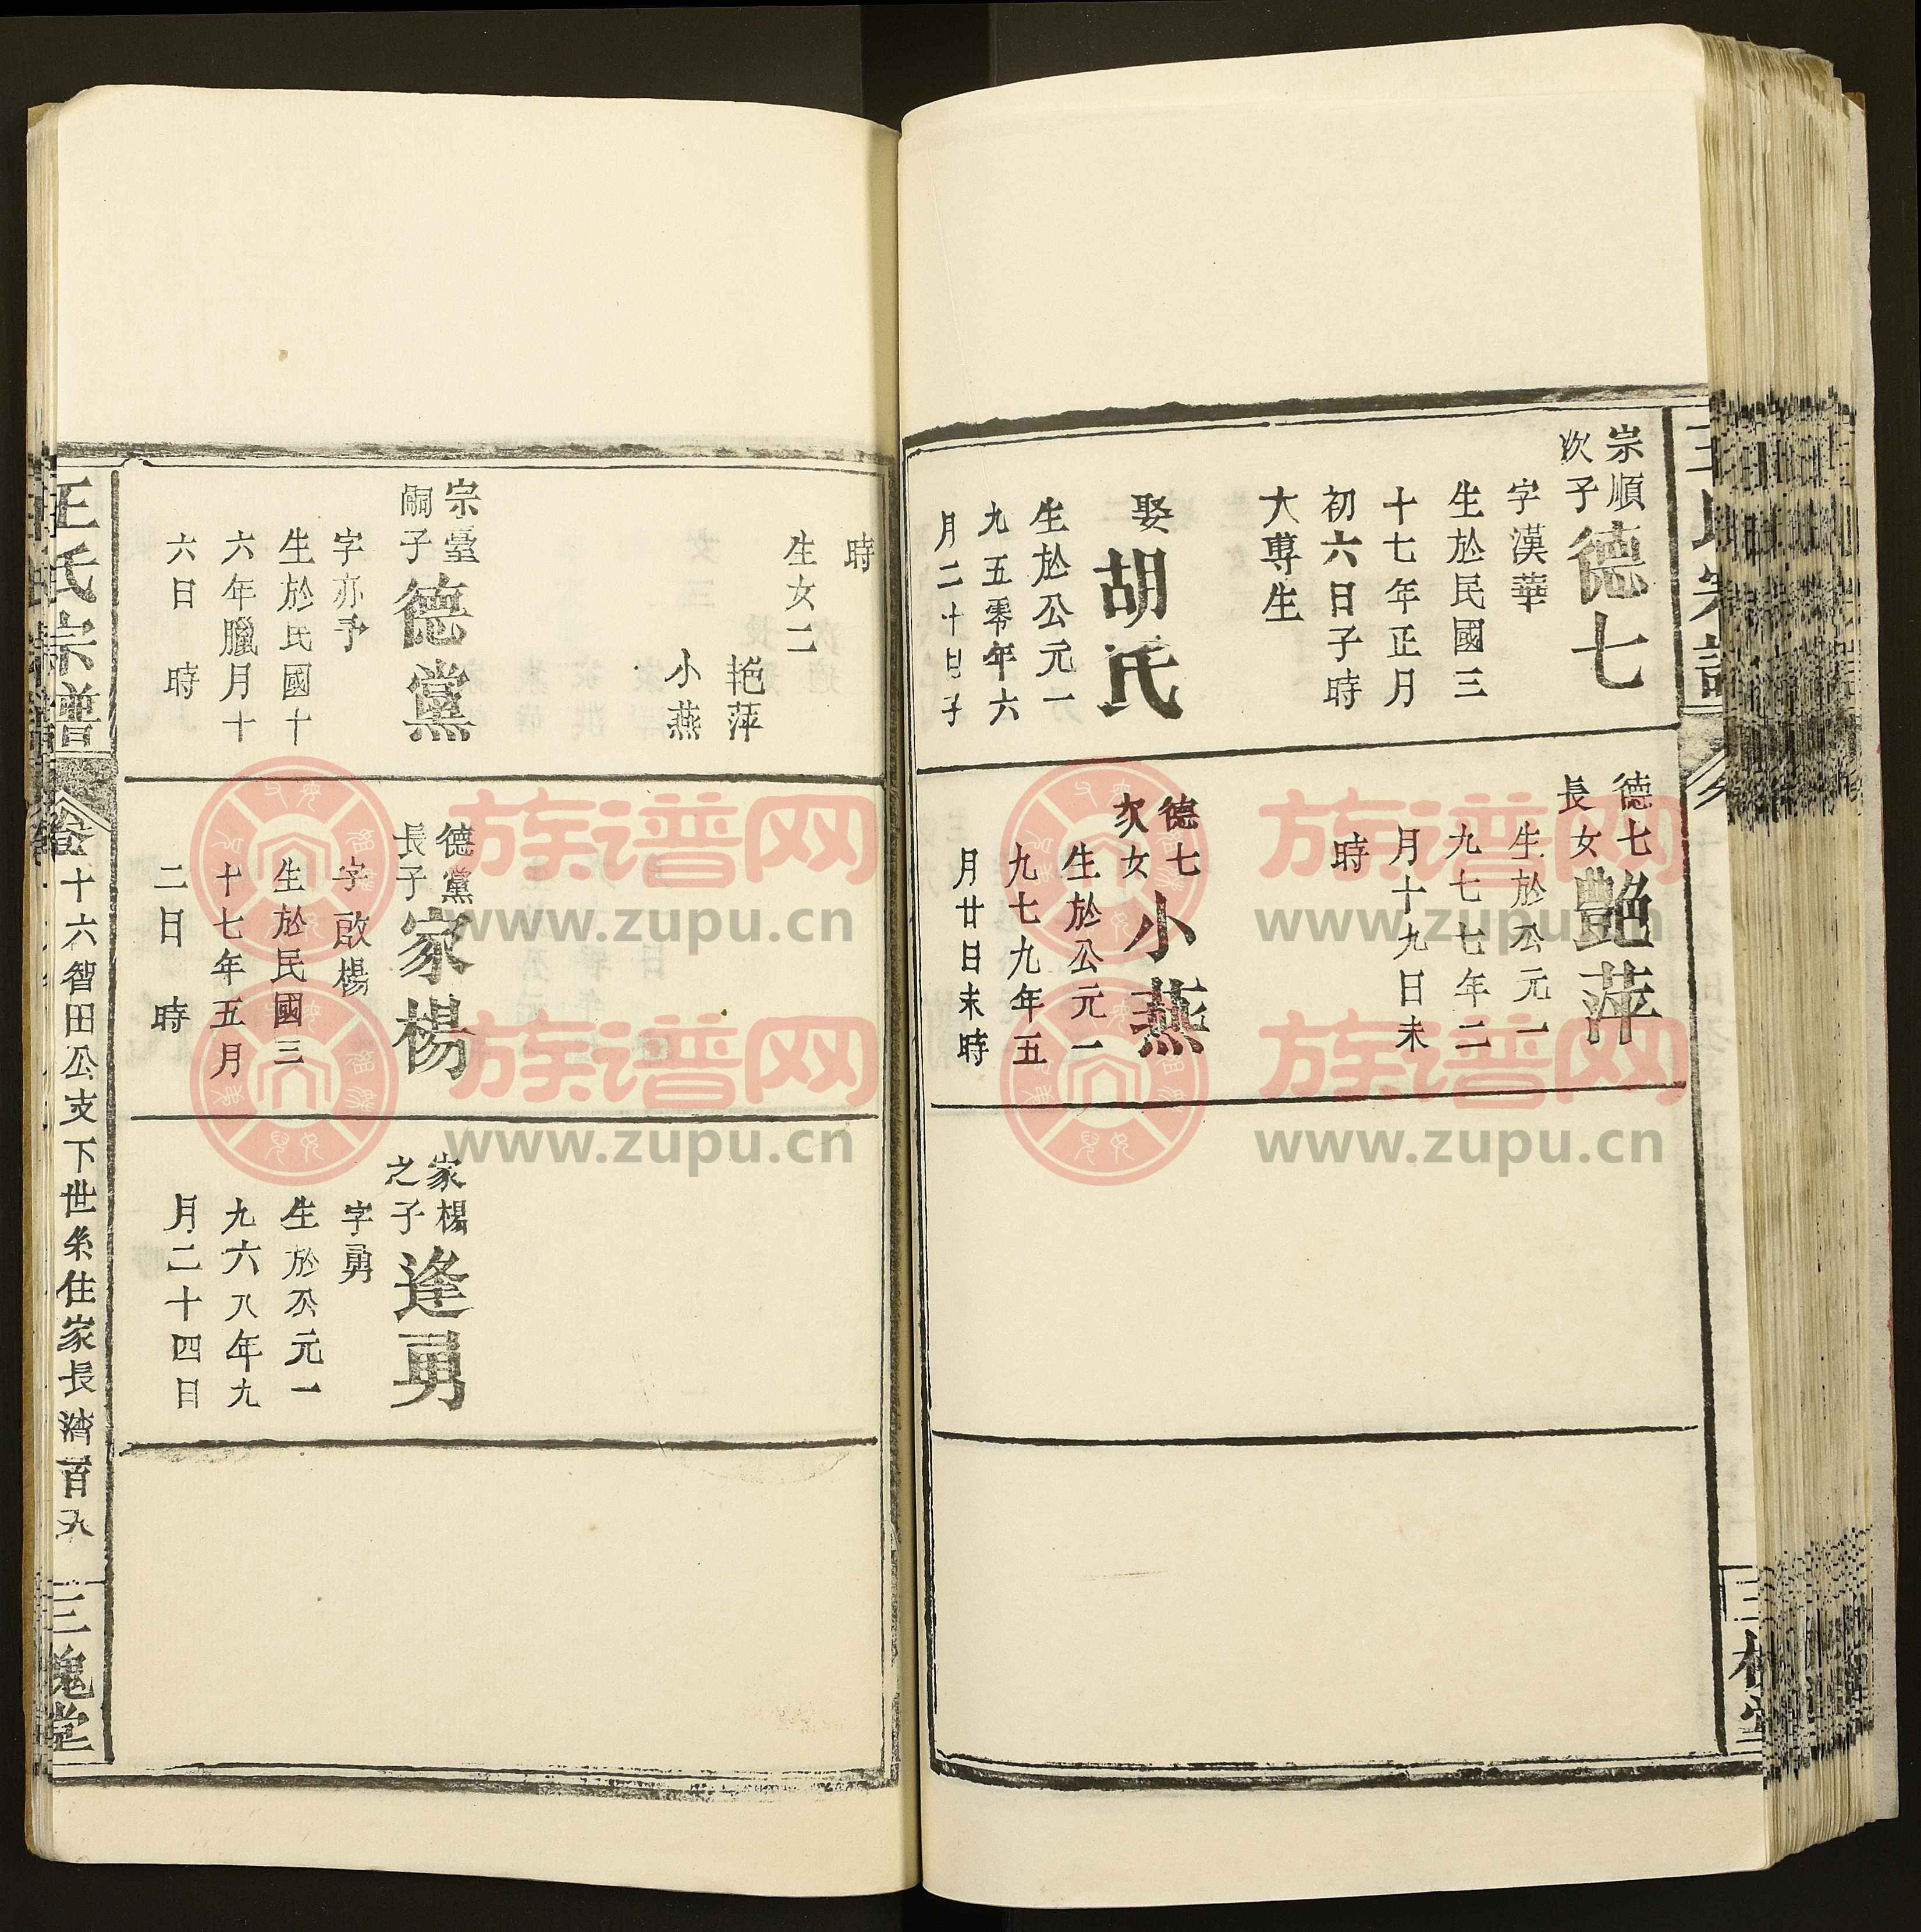 宗順
次子
德七
字漢華
生於民國三
十七年正月
初六日子時
大專生
娶胡氏
生於公元一
九五零年六
月二十日子
德七
長女
艷萍
生於公元一
九七七年二
月十九日未
時
德七
次女
小燕
生於公元一
九七九年五
月廿日未時
時
生女二
艳萍
小燕
宗臺
嗣子
德黨
字亦予
生於民國十
六年臘月十
六日 時
德黨
長子
家楊
字啟楊
生於民國三
十七年五月
二日 時
家楊
之子
逢勇
字勇
生於公元一
九六八年九
月二十四日
王氏宗譜
卷十六智田公支下世系住家長濟
三槐堂
族谱网
www.zupu.cn
族谱网
www.zupu.cn
族谱网
www.zupu.cn
族谱网
www.zupu.cn